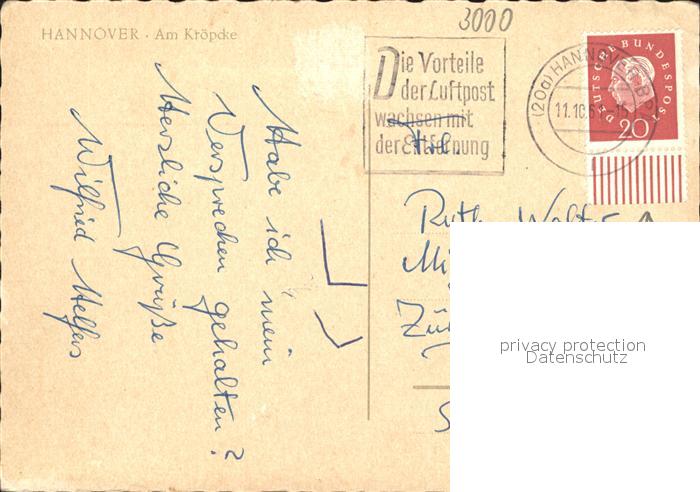 HANNOVER · Am Kröpcke
3000
Die Vorteile
der Luftpost
wachsen mit
der Entfernung
(20a) HANNOVER BP
11.10.6
DEUTSCHE BUNDESPOST
20
Habe ich mein
Versprechen gehalten?
Herzliche Grüße
Wilfried
Frl.
Ruth
privacy protection
Datenschutz